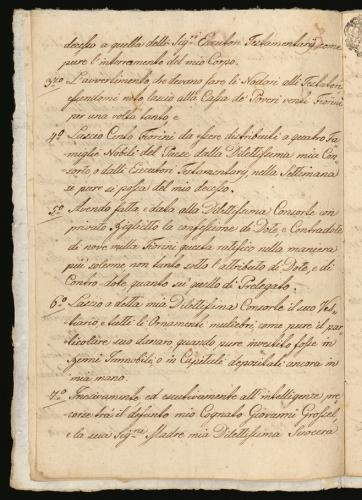 decesso a quella delli Sig.ri Esecutori Testamentarij come
pure l'interramento del mio Corpo.
3zo L'avvertimento, che devono fare li Nodari alli Testatori
essendomi noto lascio alla Cassa de' Poveri venti Fiorini
per una volta tanto, e
4o Lascio Cento Fiorini da essere distribuiti a quatro Fa-
miglie Nobili del Paese dalla Dilettissima mia Con-
sorte, o dalli Esecutori Testamentarij, nella Settimana
se pure si possa del mio decesso.
5o Avendo fatta, e data alla Dilettissima Consorte con
privato Biglietto la confessione di Dote, e Contradote
di nove milla Fiorini questa ratifico nella maniera
più solenne non tanto sotto l'attributo di Dote, e di
Contro-dote, quanto su quello di Prelegato.
6o Lascio a detta mia Dilettissima Consorte il suo Ves-
tiario, e tutti li Ornamenti muliebri, come pure il par-
ticolare suo danaro, quando pure investito fosse in
Beni Immobili, o in Capitali depositati ancora in
mia mano.
7o Insivamente ed esecutivamente all'intelligenze pre-
corse trà il defonto mio Cognato Giovanni
e la sua Sig.ra Madre mia Dilettissima Suocera